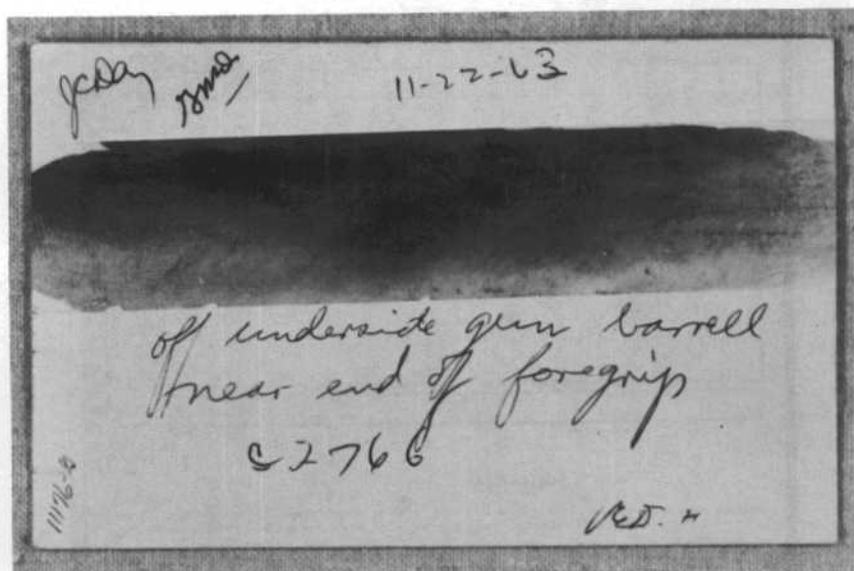 JCDay
11-22-63
off underside gun barrell
near end of foregrip
C2766